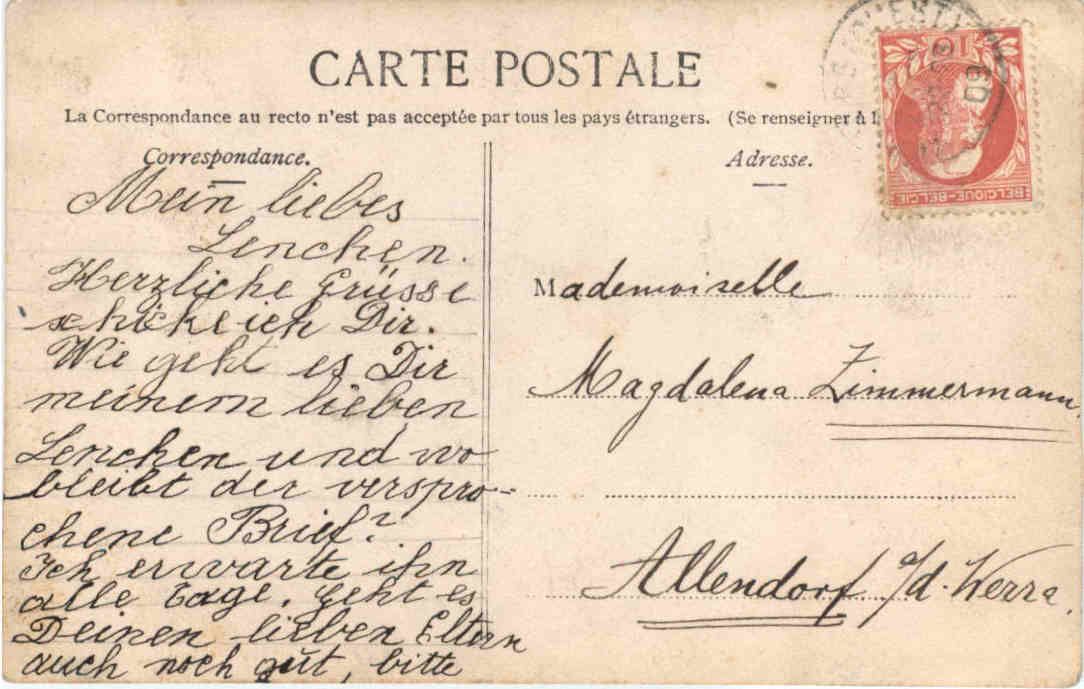 CARTE POSTALE
La Correspondance au recto n'est pas acceptée par tous les pays étrangers. (Se renseigner à l
Correspondance.
Adresse.
Mein liebes
Lenchen.
Herzliche Grüsse
schicke ich Dir.
Wie geht es Dir
meinem lieben
Lenchen und wo
bleibt der verspro-
chene Brief?
Ich erwarte ihn
alle Tage. Geht es
Deinen lieben Eltern
auch noch gut, bitte
Mademoiselle
Magdalena Zimmermann.
Allendorf a/d. Werra.
10
BELGIQUE-BELGIE
09